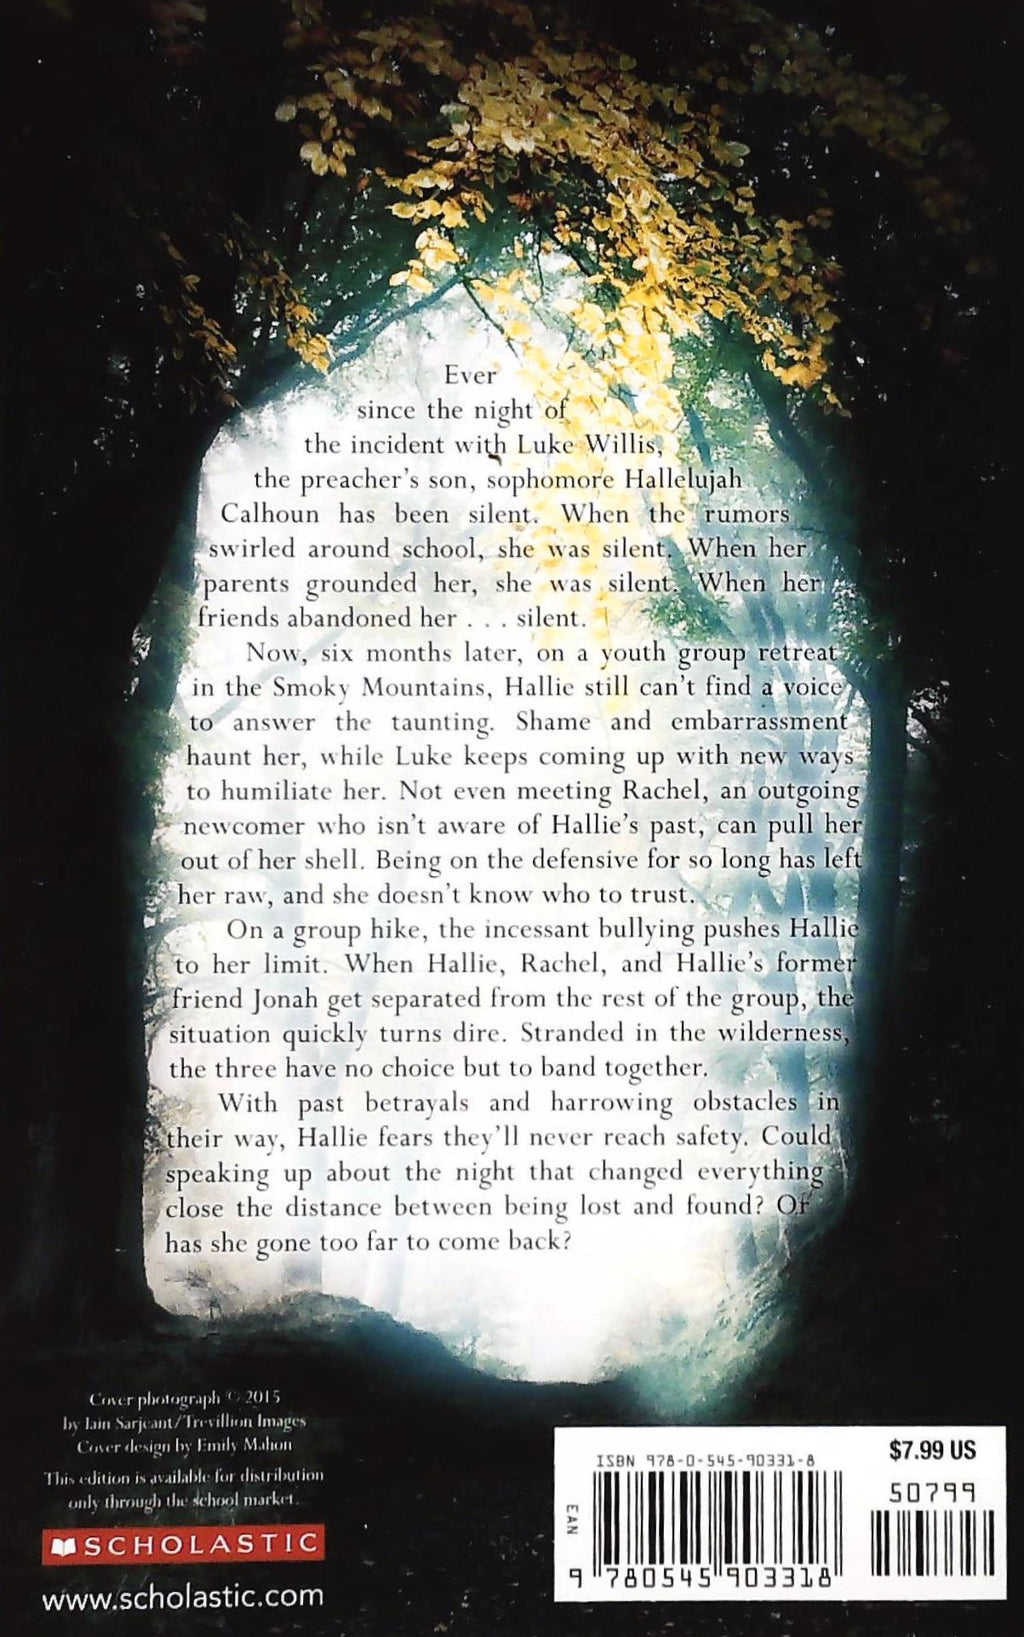 Ever
since the night of
the incident with Luke Willis,
the preacher's son, sophomore Hallelujah
Calhoun has been silent. When the rumors
swirled around school, she was silent. When her
parents grounded her, she was silent. When her
friends abandoned her . . . silent.
Now, six months later, on a youth group retreat
in the Smoky Mountains, Hallie still can't find a voice
to answer the taunting. Shame and embarrassment
haunt her, while Luke keeps coming up with new ways
to humiliate her. Not even meeting Rachel, an outgoing
newcomer who isn't aware of Hallie's past, can pull her
out of her shell. Being on the defensive for so long has left
her raw, and she doesn't know who to trust.
On a group hike, the incessant bullying pushes Hallie
to her limit. When Hallie, Rachel, and Hallie's former
friend Jonah get separated from the rest of the group, the
situation quickly turns dire. Stranded in the wilderness,
the three have no choice but to band together.
With past betrayals and harrowing obstacles in
their way, Hallie fears they'll never reach safety. Could
speaking up about the night that changed everything
close the distance between being lost and found? Or
has she gone too far to come back?
Cover photograph © 2015
by Iain Sarjeant/Trevillion Images
Cover design by Emily Mahon
This edition is available for distribution
only through the school market.
SCHOLASTIC
www.scholastic.com
ISBN 978-0-545-90331-8
$7.99 US
50799
EAN
9 780545 903318